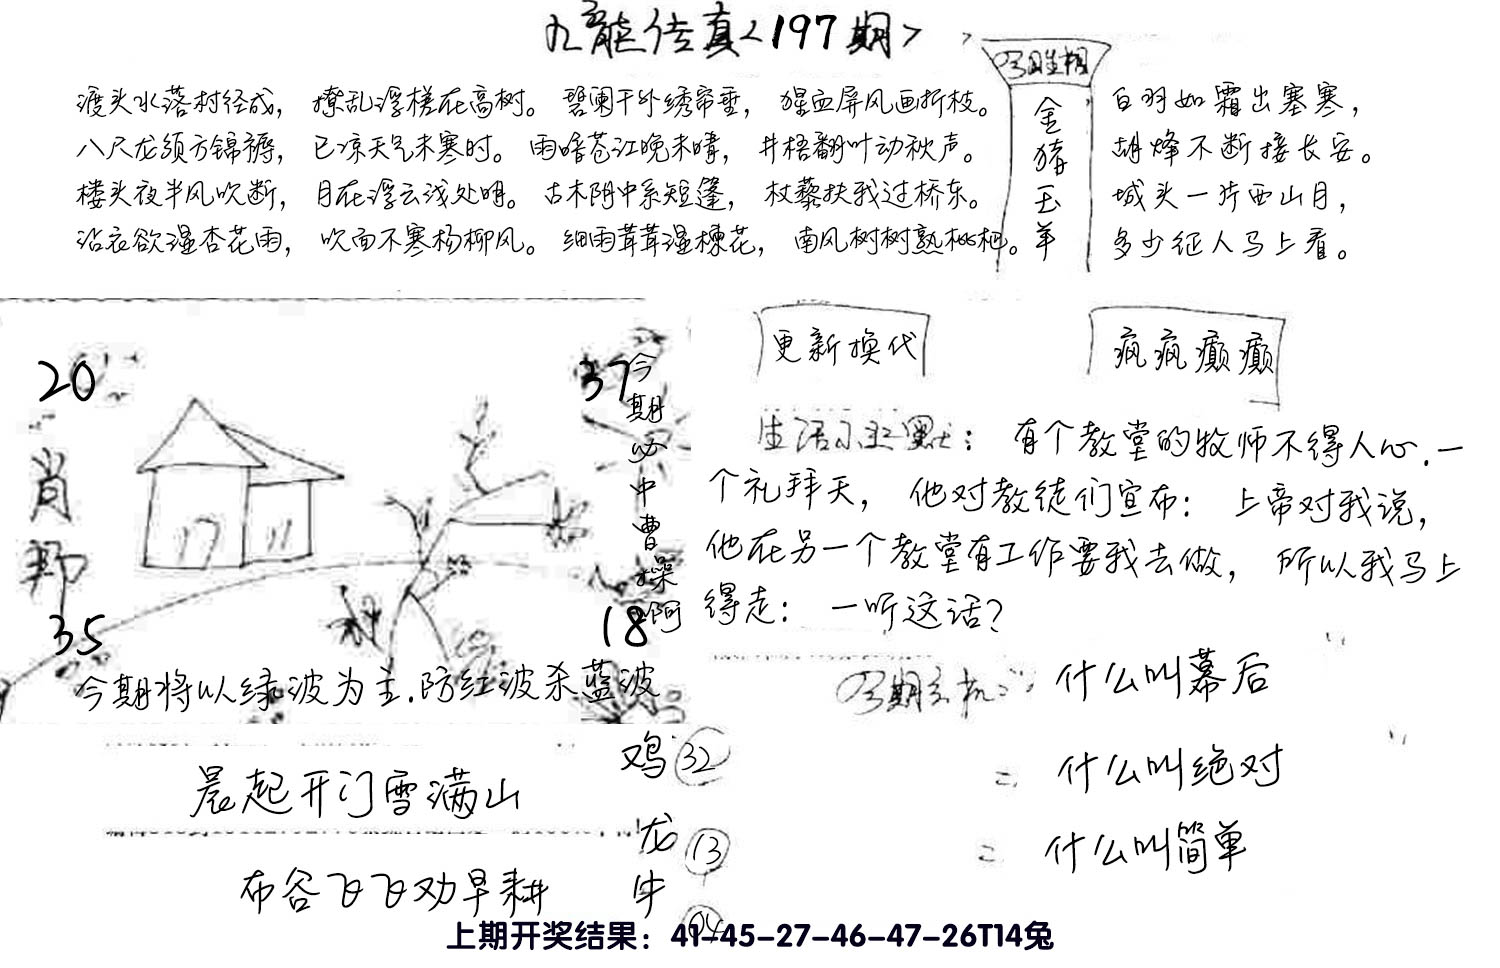 九龙传真<197期>
渡头水落村径成，撩乱浮槎在高树。碧阑干外绣帘垂，猩血屏风画折枝。
八尺龙须方锦褥，已凉天气未寒时。雨暗苍江晚未晴，井梧翻叶动秋声。
楼头夜半风吹断，月在浮云浅处明。古木阴中系短篷，杖藜扶我过桥东。
沾衣欲湿杏花雨，吹面不寒杨柳风。细雨茸茸湿楝花，南风树树熟枇杷。
金猪玉羊
白羽如霜出塞寒，
胡烽不断接长安。
城头一片西山月，
多少征人马上看。
20
37
肖郑
35
18
今期必中曹操啊
今期将以绿波为主.防红波杀蓝波
更新换代
疯疯癫癫
生活小幽默：有个教堂的牧师不得人心.一
个礼拜天，他对教徒们宣布：上帝对我说，
他在另一个教堂有工作要我去做，所以我马上
得走：一听这话？
今期玄机：什么叫幕后
二 什么叫绝对
二 什么叫简单
鸡 32
龙 13
牛 04
晨起开门雪满山
布谷飞飞劝早耕
上期开奖结果：41-45-27-46-47-26T14兔